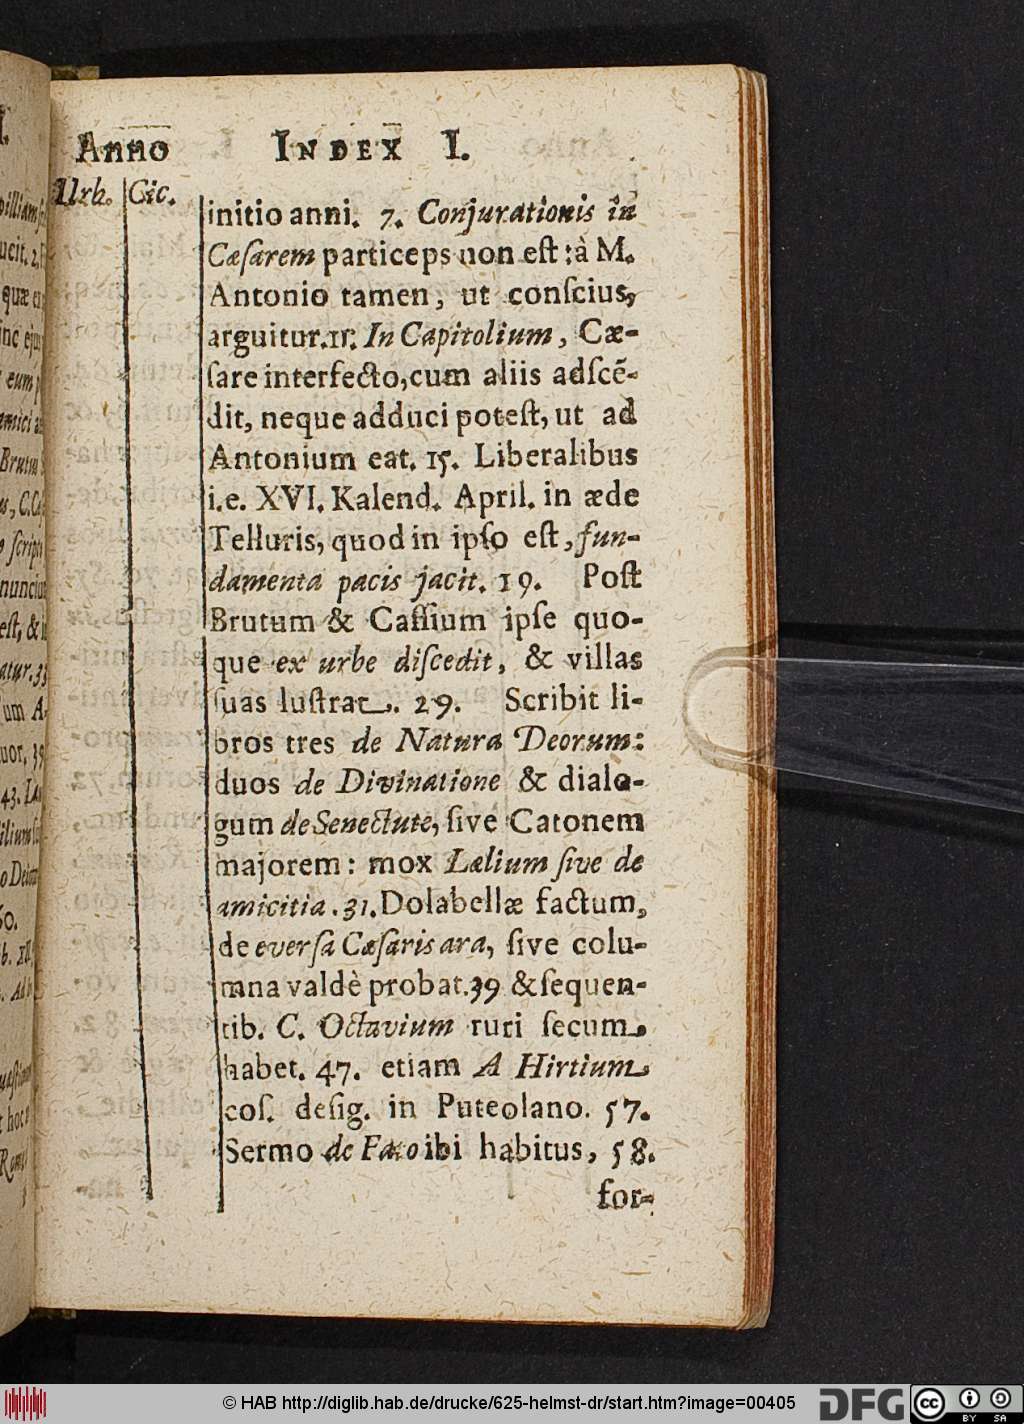 Anno INDEX I.
Urb. Cic.
initio anni. 7. Conjurationis in
Cæſarem particeps non eſt: à M.
Antonio tamen, ut conſcius,
arguitur. 11. In Capitolium, Cæ-
ſare interfecto, cum aliis adſcẽ-
dit, neque adduci poteſt, ut ad
Antonium eat. 15. Liberalibus
i.e. XVI. Kalend. April. in æde
Telluris, quod in ipſo eſt, fun-
damenta pacis jacit. 19. Poſt
Brutum & Caſſium ipſe quo-
que ex urbe diſcedit, & villas
ſuas luſtrat. 29. Scribit li-
bros tres de Natura Deorum:
duos de Divinatione & dialo-
gum de Senectute, ſive Catonem
majorem: mox Lælium ſive de
amicitia. 31. Dolabellæ factum,
de everſa Cæſaris ara, ſive colu-
mna valdè probat. 39 & ſequen-
tib. C. Octavium ruri ſecum
habet. 47. etiam A Hirtium
coſ. deſig. in Puteolano. 57.
Sermo de Fato ibi habitus, 58.
for-
© HAB http://diglib.hab.de/drucke/625-helmst-dr/start.htm?image=00405
DFG
cc BY SA